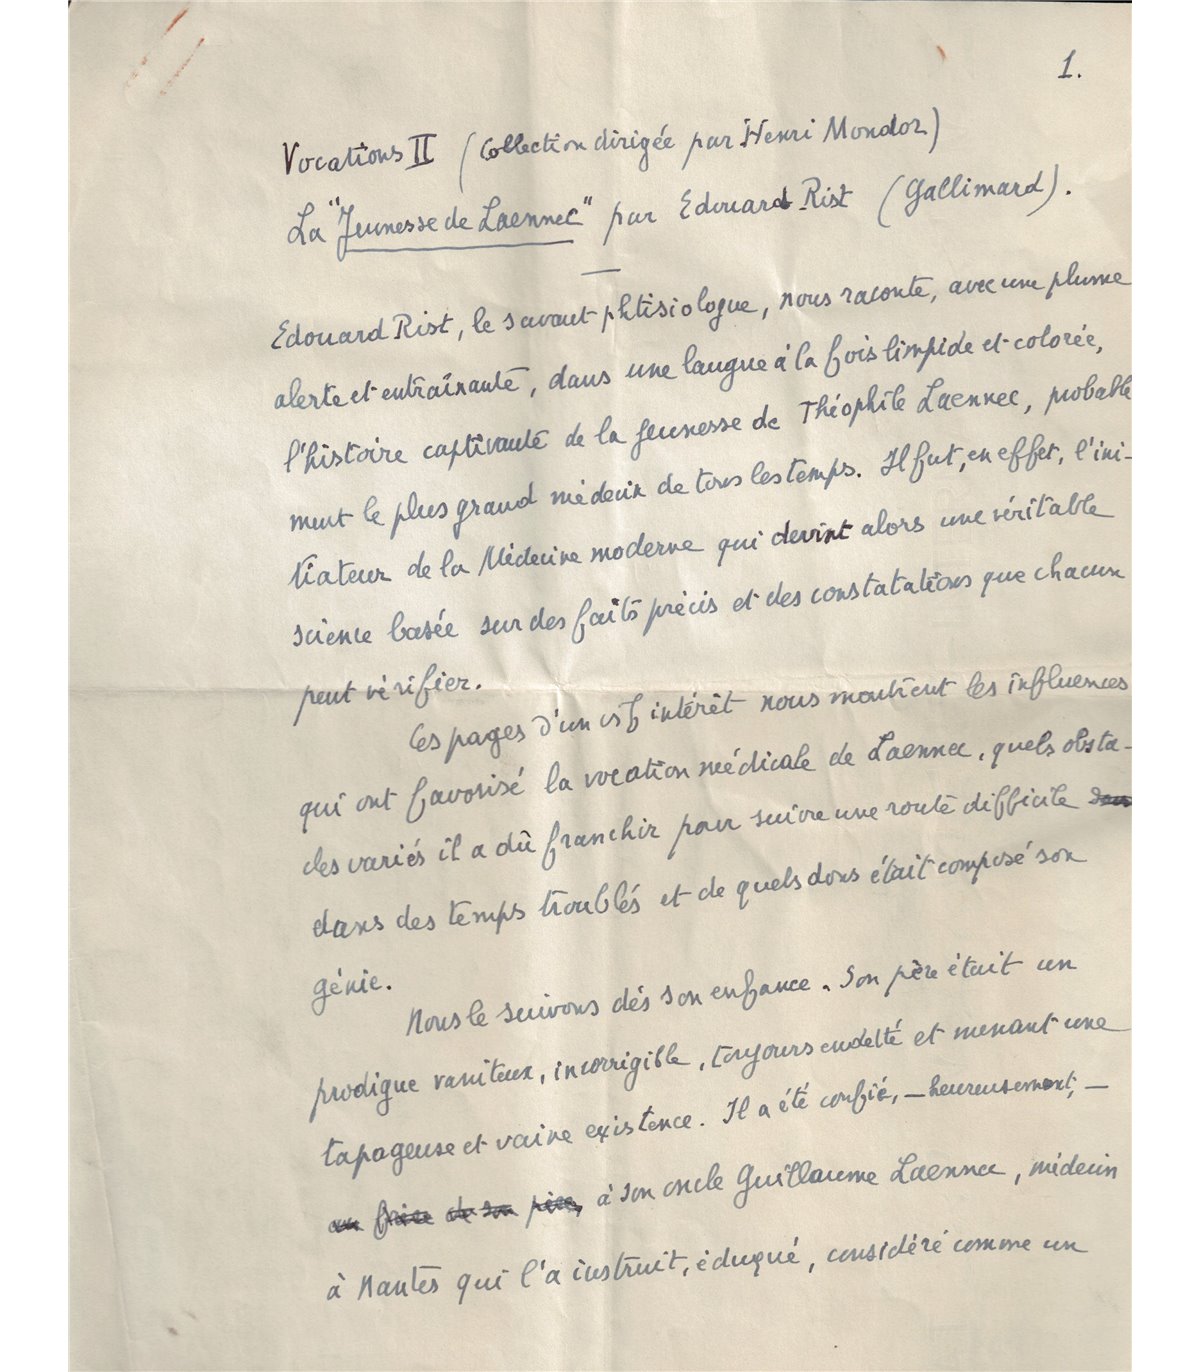 1.
Vocations II (Collection dirigée par Henri Mondor)
La "Jeunesse de Laennec" par Edouard Rist (Gallimard).
Edouard Rist, le savant phtisiologue, nous raconte, avec une plume
alerte et entraînante, dans une langue à la fois limpide et colorée,
l'histoire captivante de la jeunesse de Théophile Laennec, probable
ment le plus grand médecin de tous les temps. Il fut, en effet, l'ini-
tiateur de la Médecine moderne qui devint alors une véritable
science basée sur des faits précis et des constatations que chacun
peut vérifier.
Ces pages d'un vif intérêt nous montrent les influences
qui ont favorisé la vocation médicale de Laennec, quels obsta-
cles variés il a dû franchir pour suivre une route difficile
dans des temps troublés et de quels dons était composé son
génie.
Nous le suivons dès son enfance. Son père était un
prodigue vaniteux, incorrigible, toujours endetté et menant une
tapageuse et vaine existence. Il a été confié, – heureusement, –
au frère de son père, à son oncle Guillaume Laennec, médecin
à Nantes qui l'a instruit, éduqué, considéré comme un